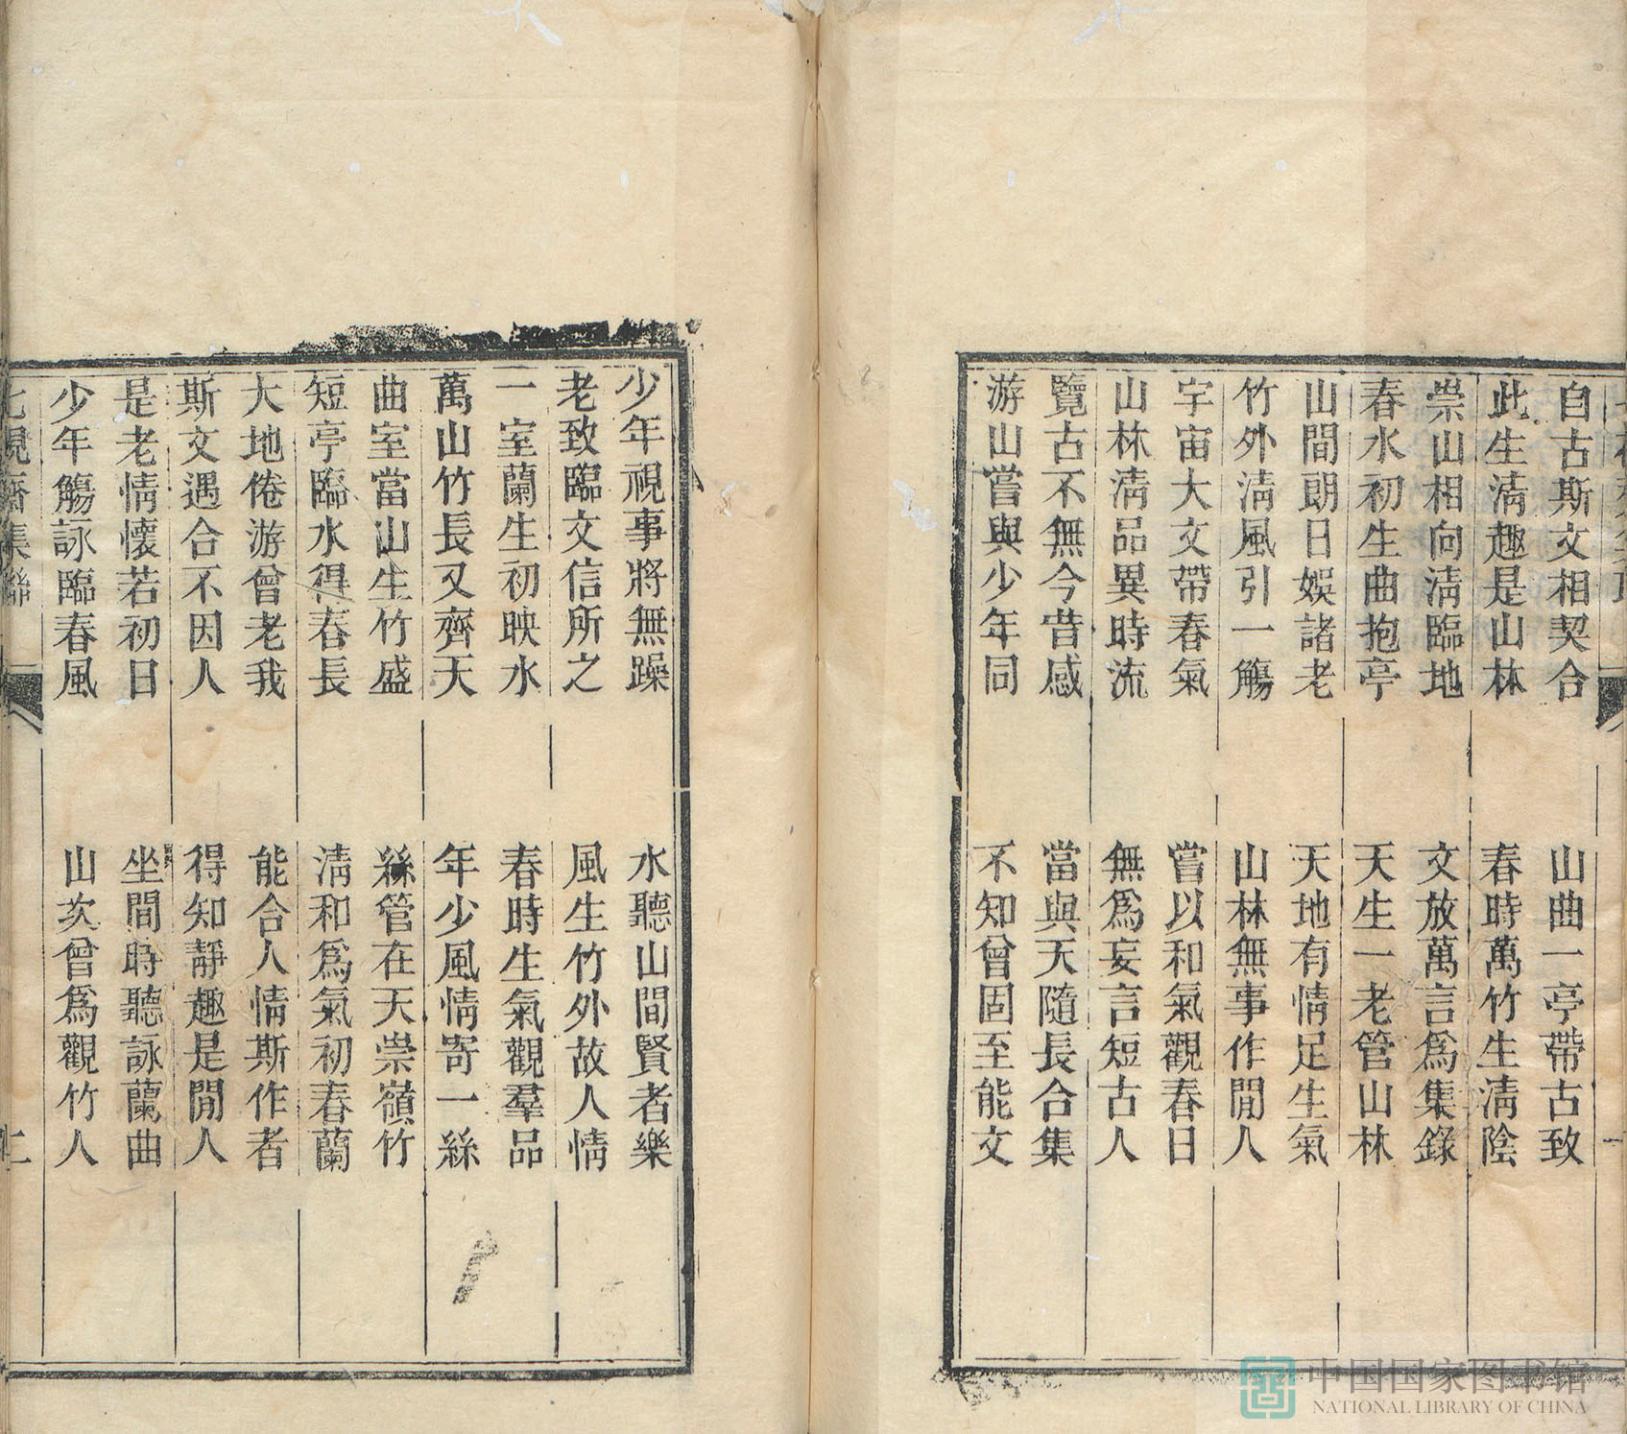 自古斯文相契合 山曲一亭帶古致
此生淸趣是山林 春時萬竹生淸陰
崇山相向淸臨地 文放萬言爲集錄
春水初生曲抱亭 天生一老管山林
山間朗日娛諸老 天地有情足生氣
竹外淸風引一觴 山林無事作閒人
宇宙大文帶春氣 嘗以和氣觀春日
山林淸品異時流 無爲妄言短古人
覽古不無今昔感 當與天隨長合集
游山嘗與少年同 不知曾固至能文
少年視事將無躁 水聽山間賢者樂
老致臨文信所之 風生竹外故人情
一室蘭生初映水 春時生氣觀羣品
萬山竹長又齊天 年少風情寄一絲
曲室當山生竹盛 絲管在天崇嶺竹
短亭臨水得春長 淸和爲氣初春蘭
大地倦游曾老我 能合人情斯作者
斯文遇合不因人 得知靜趣是閒人
是老情懷若初日 坐間時聽詠蘭曲
少年觴詠臨春風 山次曾爲觀竹人
中国国家图书馆
NATIONAL LIBRARY OF CHINA